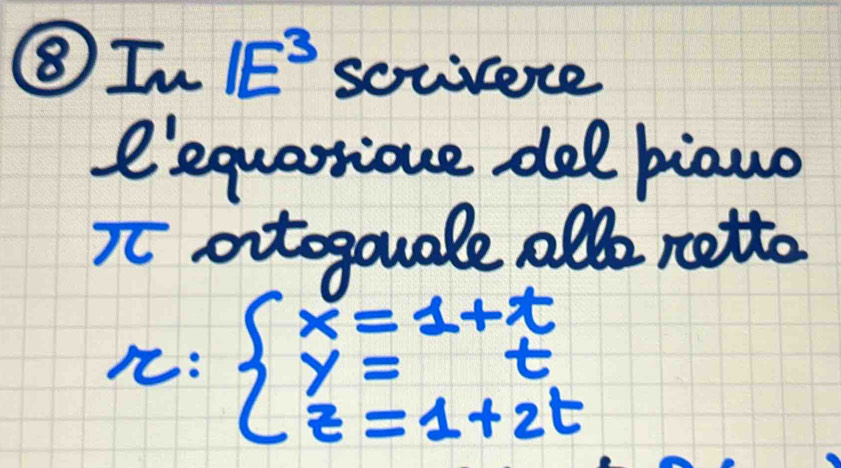 ⑧ In IE³ scrivere
l'equazione del piano
π ortogonale alla retta
r: { x = 1 + t
y = t
z = 1 + 2t